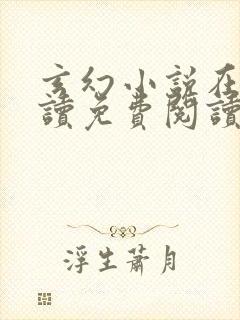 玄幻小說在
讀免費閱讀
浮生蕭月